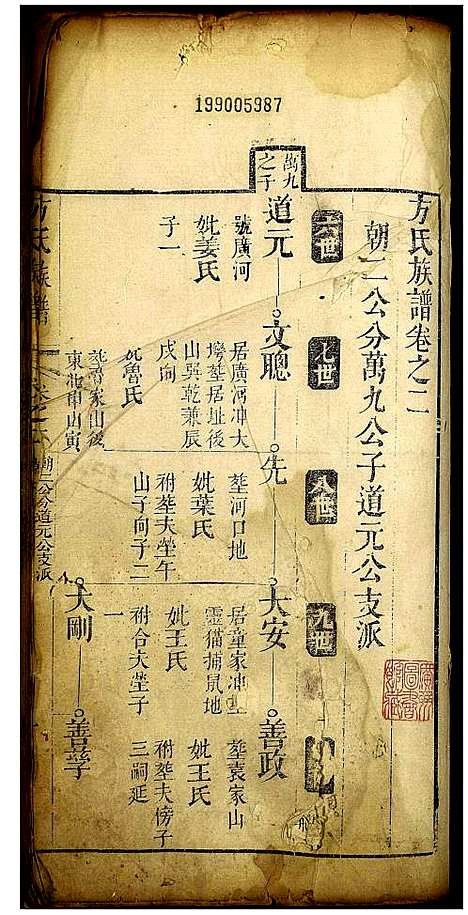 199005987
方氏族譜卷之二
朝二公分萬九公子道元公支派
六世
七世
八世
九世
萬九之子
道元
文聰
先
大安
善政
號廣河
妣姜氏
子一
居廣河冲大
塆塟居址後
山巽乾兼辰
戌向
妣魯氏
塟魯家山後
東北申山寅
塟河口地
妣葉氏
祔塟夫塋午
山子向子二
居童家冲塟
靈猫捕鼠地
妣王氏
祔合夫塋子
一
塟袁家山
妣王氏
祔塟夫傍子
三嗣延
大剛
善孳
方氏族譜
卷之二
朝二公分道元公支派